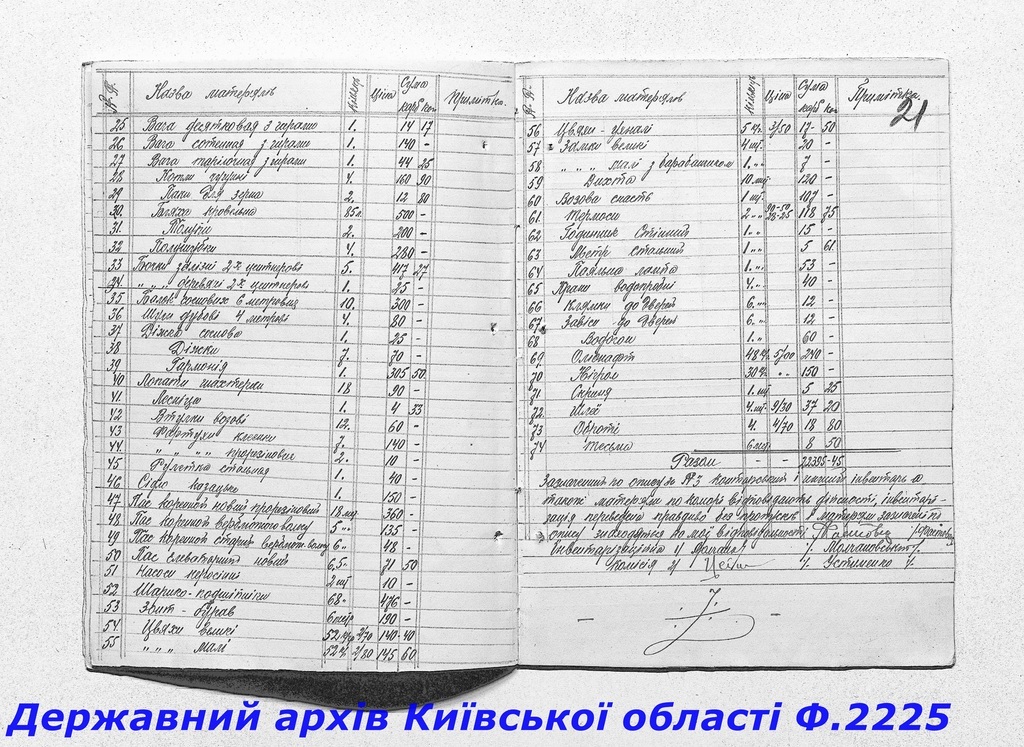 № № Назва матеріялів Кількість Ціна Сума карб коп Примітка
25 Вага десяткова з гирями 1. 14 17
26 Вага сотенная з гирями 1. 140 -
27 Вага тарілочна з гирями 1. 44 25
28 Котли чугунні 4. 160 90
29 Паки для зерна 2. 12 80
30. кровельна 85 500 -
31. 2. 200 -
32 Полушубки 4. 280 -
33 Бочки залізні 2х центнерові 5. 417 27
34 " " " деревяні 2х центнерові 1. 25 -
35 Балок соснових 6 метрових 10. 300 -
36 дубові 4 метрові 4. 80 -
37 Діжка соснова 1. 25 -
38 Діжки 7. 70 -
39 Гармонія 1. 305 50
40 Лопати шахтерки 18 90 -
41 1. 4 33
42 Втулки возові 12. 60 -
43 Фартухи клеєнки 7. 140 -
44 " " " " прорезінов 2. 10 -
45 Рулетка стальная 1. 40 -
46 Сідло козацьке 1. 150 -
47 Пас кориной новий прорезіновий 18 360 -
48 Пас кориной верблютого волосу 5 " 135 -
49 Пас кориной старий верблют. волосу 6 " 48 -
50 Пас елеваторний новий 6,5 " 21 50
51 Насоси керосінні 2 шт 10 -
52 Шарико-подшіпніки 68 " 476 -
53 190 -
54 Цвяхи великі 52 кг 2/70 140 40
55 " " " малі 52 кг. 2/80 145 60
№ № Назва матеріялів Кількість Ціна Сума карб коп Примітка
21
56 Цвяхи 5 кг. 3/50 17 - 50
57 Замки великі 4 шт. 20 -
58 " " " малі з барабанчиком 1. " " 7 -
59 Дихта 10 шт 120 -
60 Возова снасть 1 шт. 107 -
61 Термоси 2 " " 118 75
62 Годинник Стінний 1. " " 15 -
63 Метр стальний 1 " " 5 61
64 Паяльна лампа 1. " " 53 -
65 Крани водопровідні 4. " 40 -
66 Клямки до дверей 6. " 12 -
67 Завіси до дверей 6. " 12 -
68 Водогон 1. " 60 -
69 Оліонафт 48 кг. 5/00 240 -
70 Нігрол 30 кг. " " 150 -
71 Скриня 1. шт 5 25
72. Шлеї 4. шт 9/30 37 20
73 Оброті 4. 4/70 18 80
74 Тесьма 6 мет 8 50
Разом - - 22395-45
Зазначений по опису за № 3 конторський і інвентарь а
також матеріяли по коморі відповідають дійсності, інвентарі-
зація переведена правдиво без пропусків і матеріяли зазначені по
опису знаходяться на моїй відповідальності
Інвентаризаційна /Молчановський/
Комісія /Устименко/
Державний архів Київської області Ф.2225